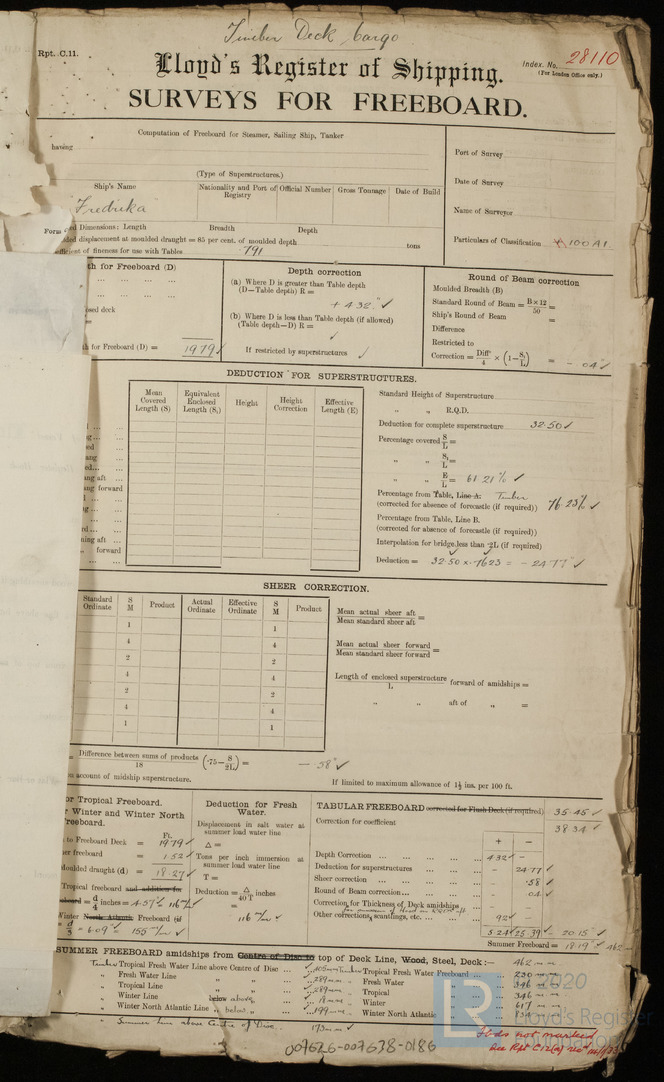 Timber Deck Cargo
Rpt. C.11.
Index. No. 28110
(For London Office only.)
Lloyd's Register of Shipping.
SURVEYS FOR FREEBOARD.
Computation of Freeboard for Steamer, Sailing Ship, Tanker
having
(Type of Superstructures.)
Port of Survey
Date of Survey
Name of Surveyor
Particulars of Classification + 100 A1.
Ship's Name
Nationality and Port of Registry
Official Number
Gross Tonnage
Date of Build
Fredrika
ed Dimensions: Length Breadth Depth
ded displacement at moulded draught = 85 per cent. of moulded depth tons
efficient of fineness for use with Tables .791
th for Freeboard (D)
osed deck
=
th for Freeboard (D) = 19.79 ✓
Depth correction
(a) Where D is greater than Table depth
(D—Table depth) R =
+ 4.32" ✓
(b) Where D is less than Table depth (if allowed)
(Table depth—D) R =
If restricted by superstructures ✓
Round of Beam correction
Moulded Breadth (B)
Standard Round of Beam = B × 12 / 50 =
Ship's Round of Beam =
Difference
Restricted to
Correction = Diff / 4 × (1 − S₁ / L) = − .04 ✓
DEDUCTION FOR SUPERSTRUCTURES.
Mean Covered Length (S)
Equivalent Enclosed Length (S₁)
Height
Height Correction
Effective Length (E)
ang aft
ang forward
ning aft
„ forward
Standard Height of Superstructure
„ „ R.Q.D.
Deduction for complete superstructure 32.50 ✓
Percentage covered S/L =
„ „ S₁/L =
„ „ E/L = 61.21% ✓
Percentage from Table, Line A. Timber
(corrected for absence of forecastle (if required)) 76.23% ✓
Percentage from Table, Line B.
(corrected for absence of forecastle (if required))
Interpolation for bridge less than ·2L (if required)
Deduction = 32.50 × .7623 = − 24.77" ✓
SHEER CORRECTION.
Standard Ordinate
S M
Product
Actual Ordinate
Effective Ordinate
S M
Product
1 1
4 4
2 2
4 4
2 2
4 4
1 1
Mean actual sheer aft / Mean standard sheer aft =
Mean actual sheer forward / Mean standard sheer forward =
Length of enclosed superstructure / L forward of amidships =
„ „ aft of „ =
= Difference between sums of products / 18 (·75 − S / 2L) = − .58" ✓
account of midship superstructure.
If limited to maximum allowance of 1½ ins. per 100 ft.
or Tropical Freeboard.
r Winter and Winter North
Freeboard.
Ft.
to Freeboard Deck = 19.79 ✓
er freeboard = 1.52 ✓
Moulded draught (d) = 18.27 ✓
Tropical freeboard and addition for
board = d/4 inches = 4.57" = 116 m/m ✓
Winter North Atlantic Freeboard (if
= d/3 = 6.09" = 155 m/m ✓
Deduction for Fresh
Water.
Displacement in salt water at
summer load water line
Δ =
Tons per inch immersion at
summer load water line
T =
Deduction = Δ / 40T inches
=
116 m/m ✓
TABULAR FREEBOARD corrected for Flush Deck (if required) 35.45 ✓
Correction for coefficient 38.34 ✓
+ −
Depth Correction 4.32 ✓ −
Deduction for superstructures − 24.77 ✓
Sheer correction − .58 ✓
Round of Beam correction − .04 ✓
Correction for Thickness of Deck amidships
Other corrections, scantlings, etc. .92 ✓ −
5.24 25.39 − 20.15 ✓
Summer Freeboard = 18.19" ✓ 462
SUMMER FREEBOARD amidships from Centre of Disc to top of Deck Line, Wood, Steel, Deck:— 462 m m
Timber Tropical Fresh Water Line above Centre of Disc
„ Fresh Water Line „ „ 289 m m
„ Tropical Line „ „ 289 m m
„ Winter Line below above „
„ Winter North Atlantic Line „ below „ 199 m m
„ Summer Line above Centre of Disc. 173 m m ✓
Timber Tropical Fresh Water Freeboard 230 m m
„ Fresh Water „ 346 m m
„ Tropical „ 346 m m
„ Winter „ 617 m m
„ Winter North Atlantic „
Fbds not marked
See Rpt C.12(a)
© 2020
Lloyd's Register
Foundation
007626-007638-0186